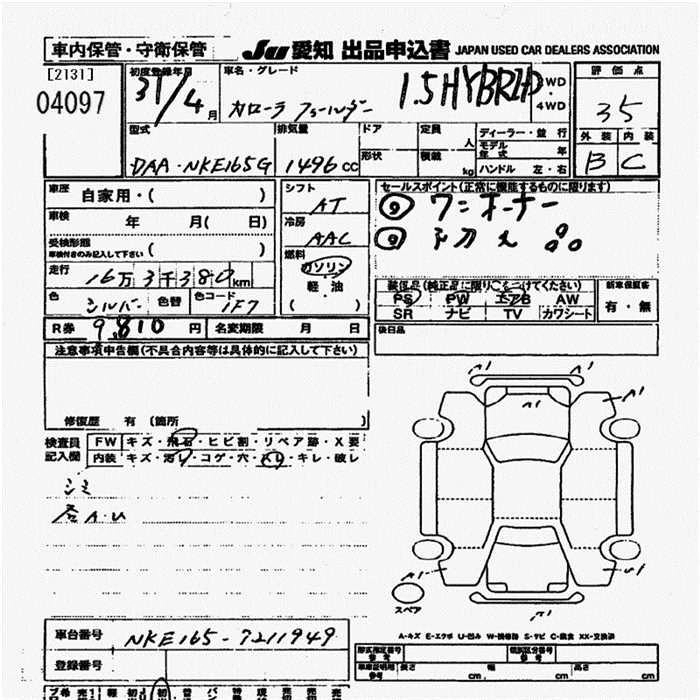 車内保管・守衛保管
JU 愛知 出品申込書 JAPAN USED CAR DEALERS ASSOCIATION
[2131]
04097
初度登録年月
31/4月
車名・グレード
カローラ フィールダー 1.5HYBRID
2WD・4WD
評価点
3.5
外装 内装
B C
型式
DAA-NKE165G
排気量
1496 cc
ドア
形状
定員 人
積載 kg
ディーラー・並行
モデル年式 年
ハンドル 左・右
車歴 自家用・( )
車検 年 月( 日)
受検形態
車検付きのみ記入して下さい ( )
走行 16万3千380km
色 シルバー 色替 色コード 1F7
R券 9,810円 名変期限 月 日
シフト
AT
冷房
AAC
燃料
ガソリン・軽油
( )
セールスポイント(正常に機能するものに限ります)
⑨ ワンオーナー
装備品(純正品に限り○をつけてください)
PS PW エアB AW
SR ナビ TV カワシート
新車保証書
有・無
後日品
注意事項申告欄(不具合内容等は具体的に記入して下さい)
修復歴 有 (箇所 )
検査員記入欄
FW キズ・飛石・ヒビ割・リペア跡・X要
内装 キズ・汚レ・コゲ・穴・スレ・キレ・破レ
シミ
各A.U
A1 A1
A1 A1
A1 U1
A1
スペア
A-キズ E-エクボ U-凹み W-補修跡 S-サビ C-腐食 XX-交換済
車台番号 NKE165-7211949
登録番号
型式指定番号 参考
類別区分番号 参考
車庫証明用 参考 長さ cm, 幅 cm, 高さ cm